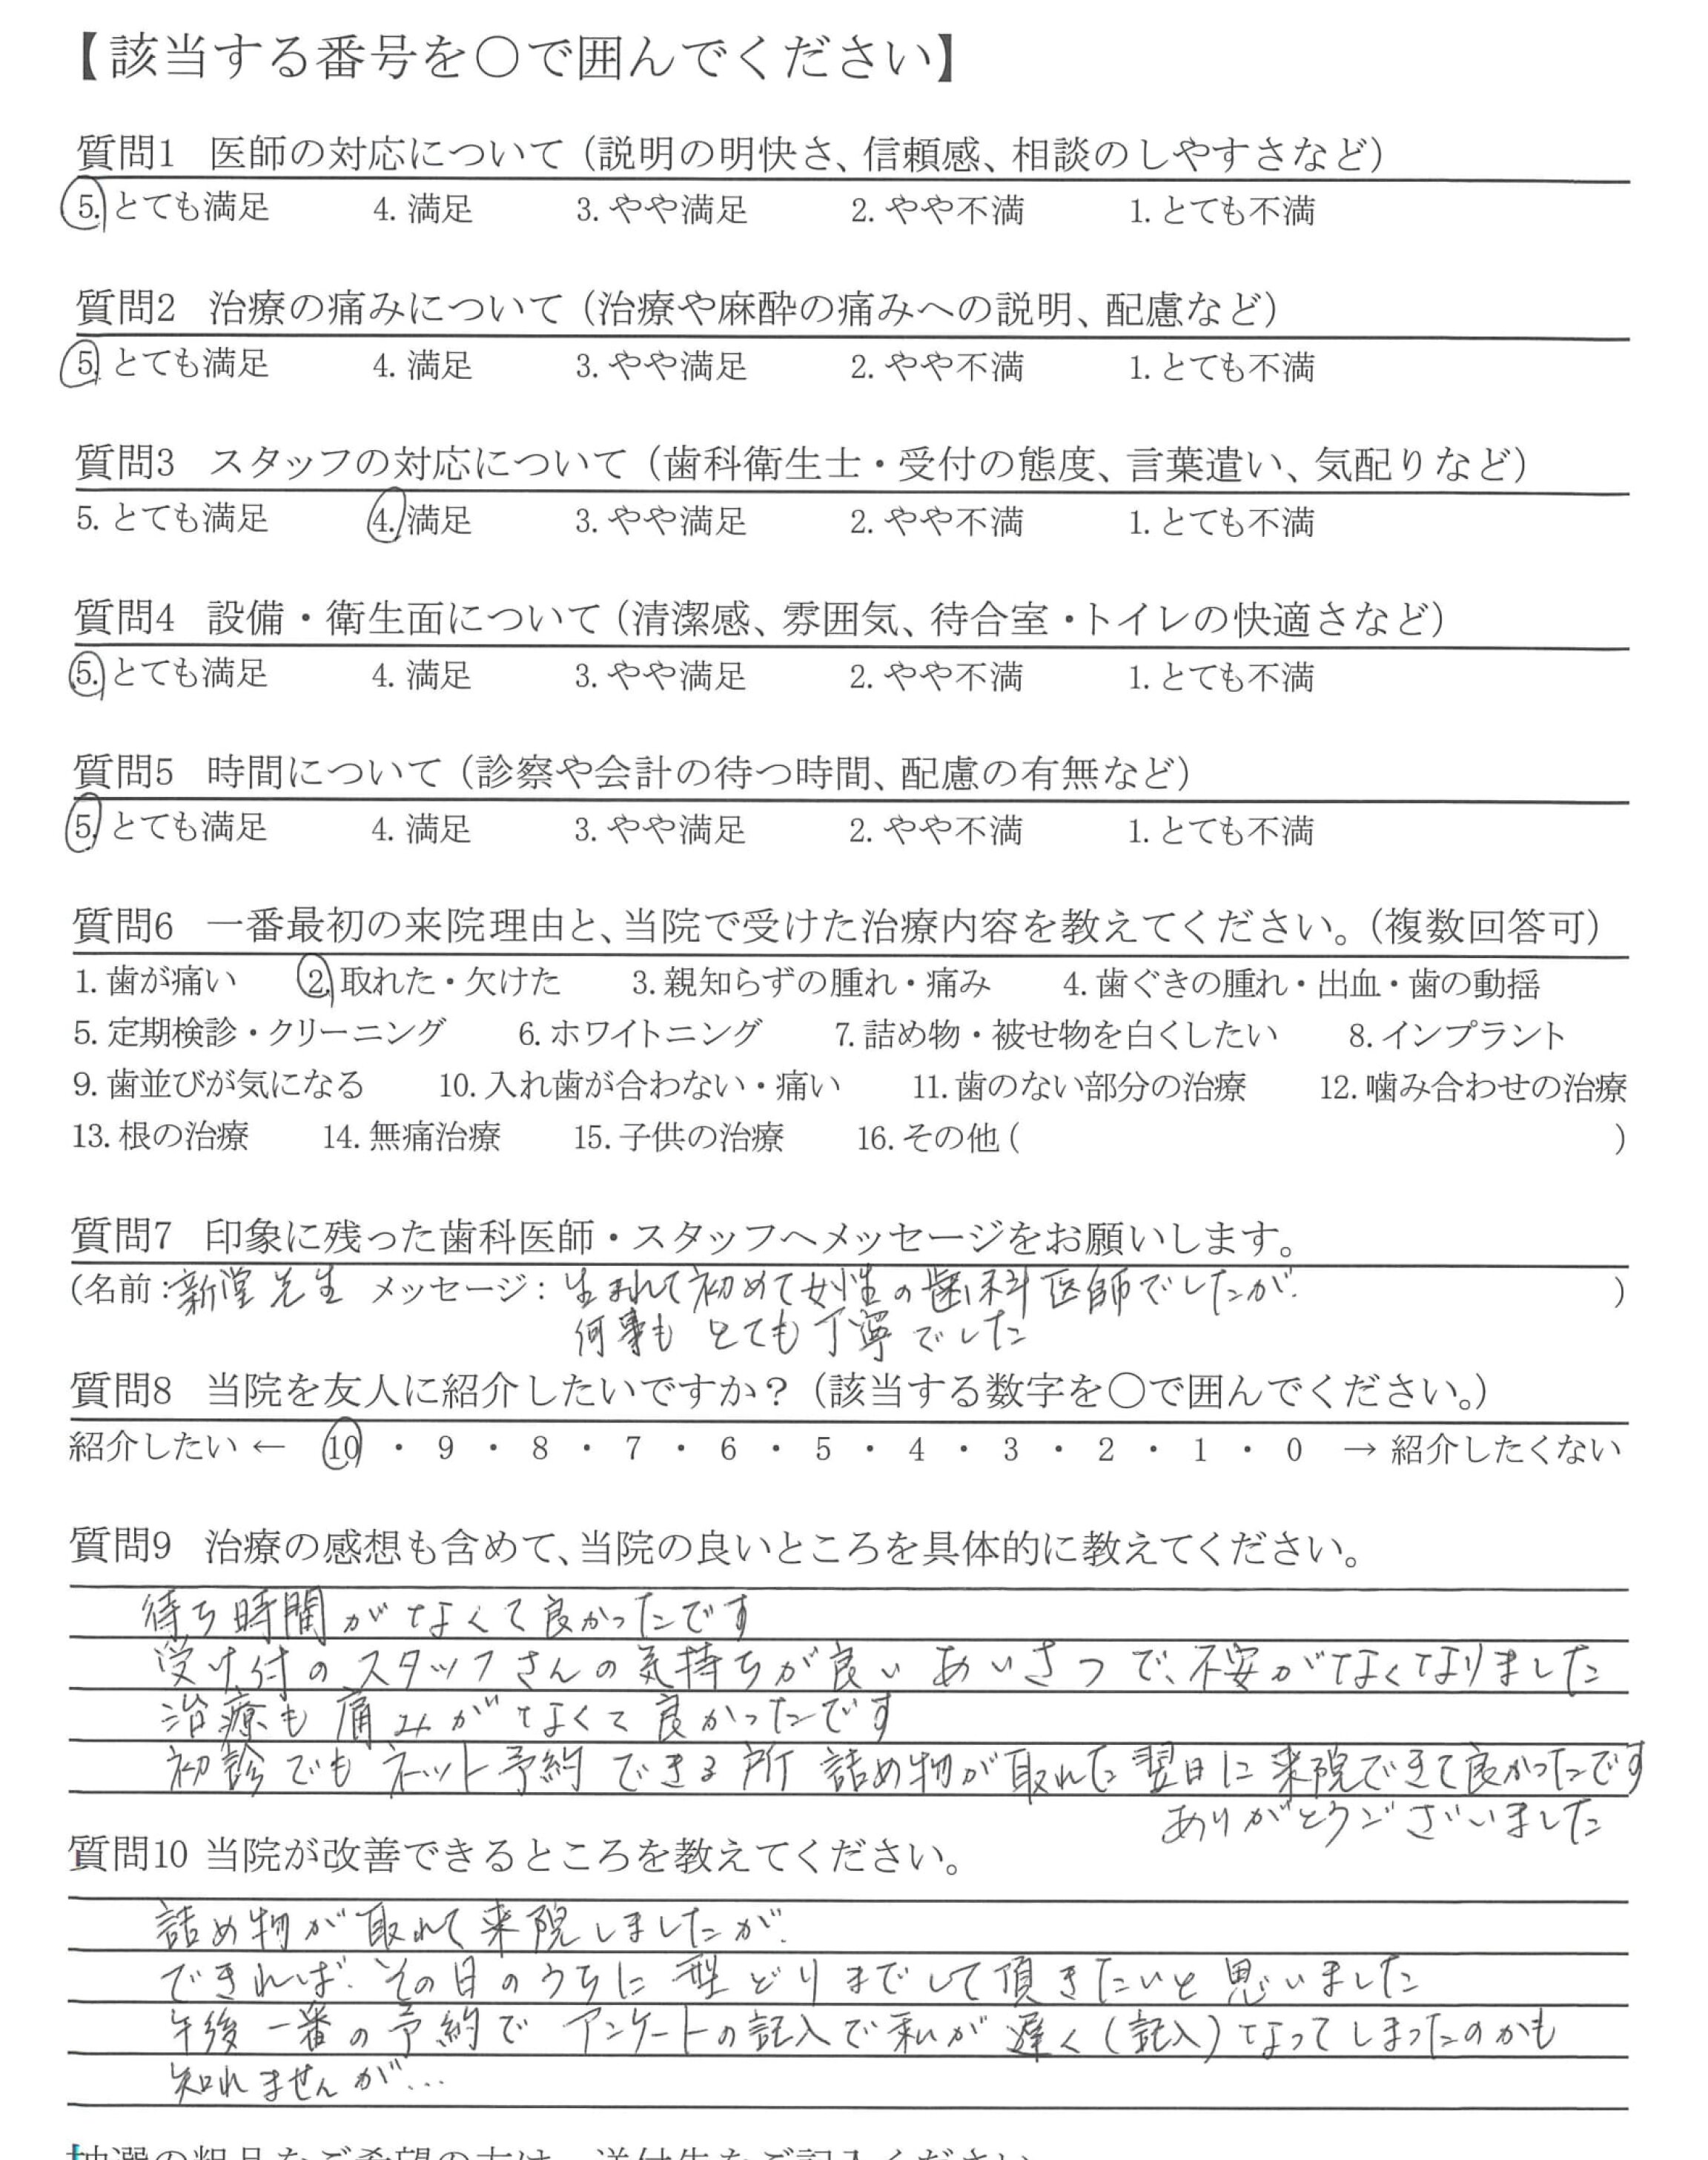 【該当する番号を〇で囲んでください】
質問1 医師の対応について（説明の明快さ、信頼感、相談のしやすさなど）
5. とても満足 4. 満足 3. やや満足 2. やや不満 1. とても不満
質問2 治療の痛みについて（治療や麻酔の痛みへの説明、配慮など）
5. とても満足 4. 満足 3. やや満足 2. やや不満 1. とても不満
質問3 スタッフの対応について（歯科衛生士・受付の態度、言葉遣い、気配りなど）
5. とても満足 4. 満足 3. やや満足 2. やや不満 1. とても不満
質問4 設備・衛生面について（清潔感、雰囲気、待合室・トイレの快適さなど）
5. とても満足 4. 満足 3. やや満足 2. やや不満 1. とても不満
質問5 時間について（診察や会計の待つ時間、配慮の有無など）
5. とても満足 4. 満足 3. やや満足 2. やや不満 1. とても不満
質問6 一番最初の来院理由と、当院で受けた治療内容を教えてください。（複数回答可）
1. 歯が痛い 2. 取れた・欠けた 3. 親知らずの腫れ・痛み 4. 歯ぐきの腫れ・出血・歯の動揺
5. 定期検診・クリーニング 6. ホワイトニング 7. 詰め物・被せ物を白くしたい 8. インプラント
9. 歯並びが気になる 10. 入れ歯が合わない・痛い 11. 歯のない部分の治療 12. 噛み合わせの治療
13. 根の治療 14. 無痛治療 15. 子供の治療 16. その他 ( )
質問7 印象に残った歯科医師・スタッフへメッセージをお願いします。
(名前：新堂先生 メッセージ：生まれて初めて女性の歯科医師でしたが、 )
何事も とても丁寧でした
質問8 当院を友人に紹介したいですか？（該当する数字を〇で囲んでください。）
紹介したい ← 10 ・ 9 ・ 8 ・ 7 ・ 6 ・ 5 ・ 4 ・ 3 ・ 2 ・ 1 ・ 0 → 紹介したくない
質問9 治療の感想も含めて、当院の良いところを具体的に教えてください。
待ち時間がなくて良かったです
受け付のスタッフさんの気持ちが良いあいさつで、不安がなくなりました
治療も痛みがなくて良かったです
初診でもネット予約できる所 詰め物が取れた翌日に来院できて良かったです
ありがとうございました
質問10 当院が改善できるところを教えてください。
詰め物が取れて来院しましたが、
できれば、その日のうちに型どりまでして頂きたいと思いました
午後一番の予約でアンケートの記入で私が遅く（記入）なってしまったのかも
知れませんが…
抽選の粗品をご希望の方は、送付先をご記入ください